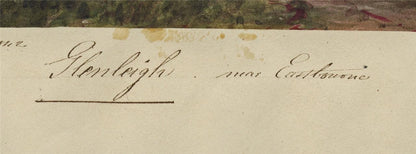 Glenleigh . near Eastbourne